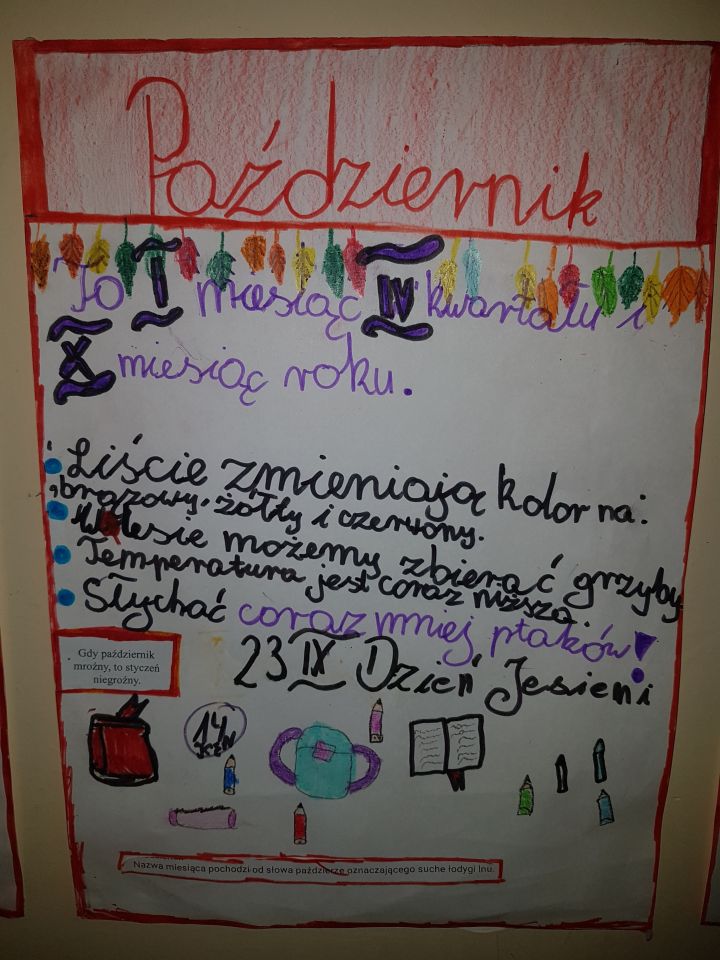 Październik
To I miesiąc IV kwartału i
X miesiąc roku.
Liście zmieniają kolor na:
brązowy, żółty i czerwony.
W lesie możemy zbierać grzyby
Temperatura jest coraz niższa.
Słychać coraz mniej ptaków!
Gdy październik
mroźny, to styczeń
niegroźny.
23 IX Dzień Jesieni
14
Nazwa miesiąca pochodzi od słowa paździerze oznaczającego suche łodygi lnu.